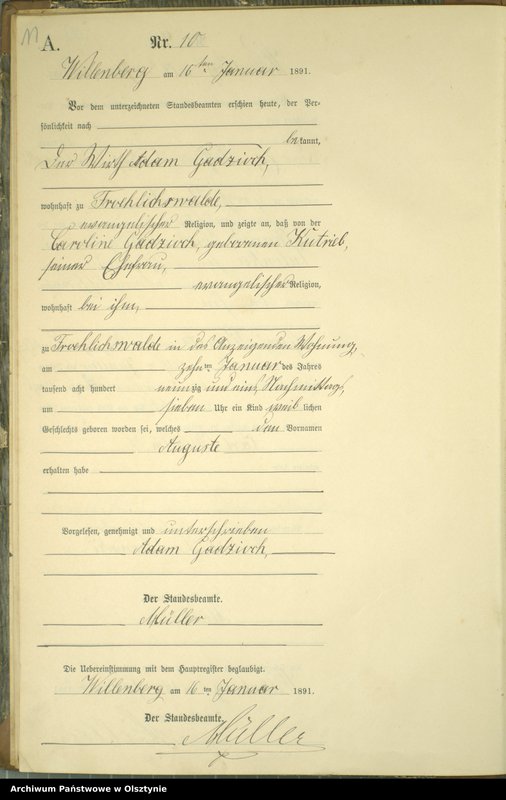 11
A.
Nr. 10
Willenberg am 16ten Januar 1891.
Vor dem unterzeichneten Standesbeamten erschien heute, der Per-
sönlichkeit nach
bekannt,
Der Wirth Adam Gadzioch,
wohnhaft zu Froehlichswalde,
evangelischer Religion, und zeigte an, daß von der
Caroline Gadzioch, geborenen Kutrieb,
seiner Ehefrau,
evangelischer Religion,
wohnhaft bei ihm,
zu Froehlichswalde in des Anzeigenden Wohnung,
am zehnten Januar des Jahres
tausend acht hundert neunzig und eins, Nachmittags,
um sieben Uhr ein Kind weiblichen
Geschlechts geboren worden sei, welches den Vornamen
Auguste
erhalten habe
Vorgelesen, genehmigt und unterschrieben
Adam Gadzioch,
Der Standesbeamte.
Müller
Die Uebereinstimmung mit dem Hauptregister beglaubigt.
Willenberg am 16ten Januar 1891.
Der Standesbeamte.
Müller
Archiwum Państwowe w Olsztynie